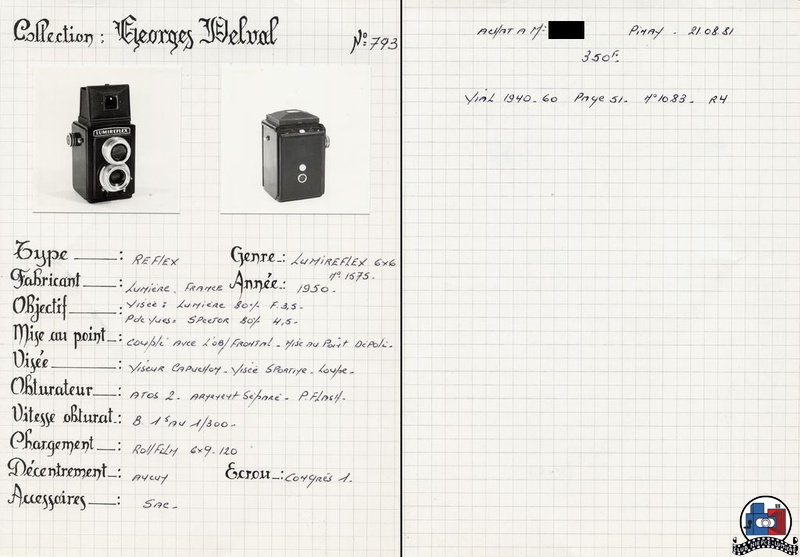 Collection : Georges Delval
N°: 793
LUMIREFLEX
Type : REFLEX
Genre : LUMIREFLEX 6x6
N° 1575-
Fabricant : LUMIÈRE. FRANCE
Année : 1950-
Objectif : Visée : LUMIÈRE 80% F. 3,5-
SPECTOR 80% 4,5-
Mise au point : COUPLÉ AVEC L'OB/FRONTAL - MISE AU POINT DEPOLI-
Visée : VISEUR CAPUCHON - VISÉE SPORTIVE - LOUPE-
Obturateur : ATOS 2- ARMEMENT SÉPARÉ - P. FLASH-
Vitesse obturat : B. 1s AU 1/300-
Chargement : ROLLFILM 6x9-120
Décentrement : AUCUN
Ecrou : CONGRÈS 1-
Accessoires : SAC-
ACHAT A Mr
PINAY - 21.08.81
350F-
VIAL 1940-60 PAGE 51- N°1083- R4